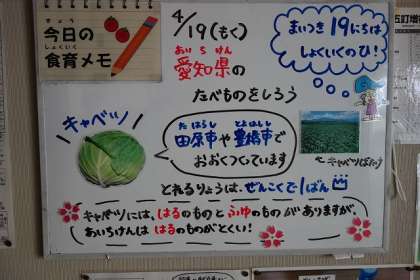 きょう
今日の
しょくいく
食育メモ
4/19(もく)
あいちけん
愛知県の
たべものをしろう
まいつき19にちは
しょくいくのひ!
キャベツ
たはらし とよはしし
田原市や豊橋市で
おおくつくっています
←キャベツばたけ
とれるりょうは、ぜんこくで1ばん
キャベツには、はるのものとふゆのものがありますが
あいちけんは はるのものがとくい!